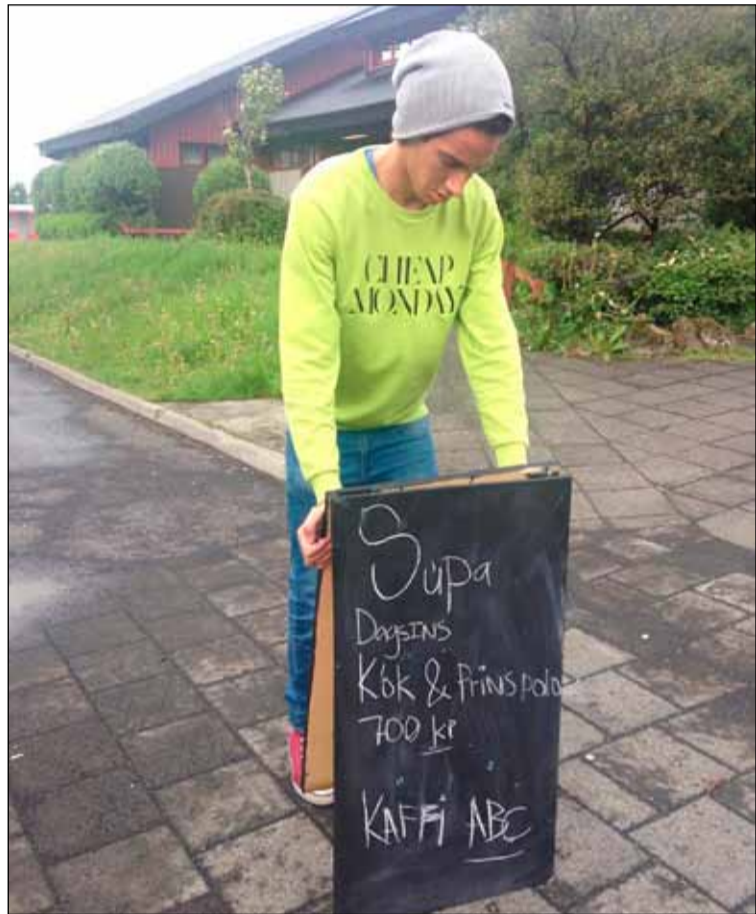 CHEAP
MONDAY
Súpa
Dagsins
Kók & Prins polo
700 kr
KAFFI ABC